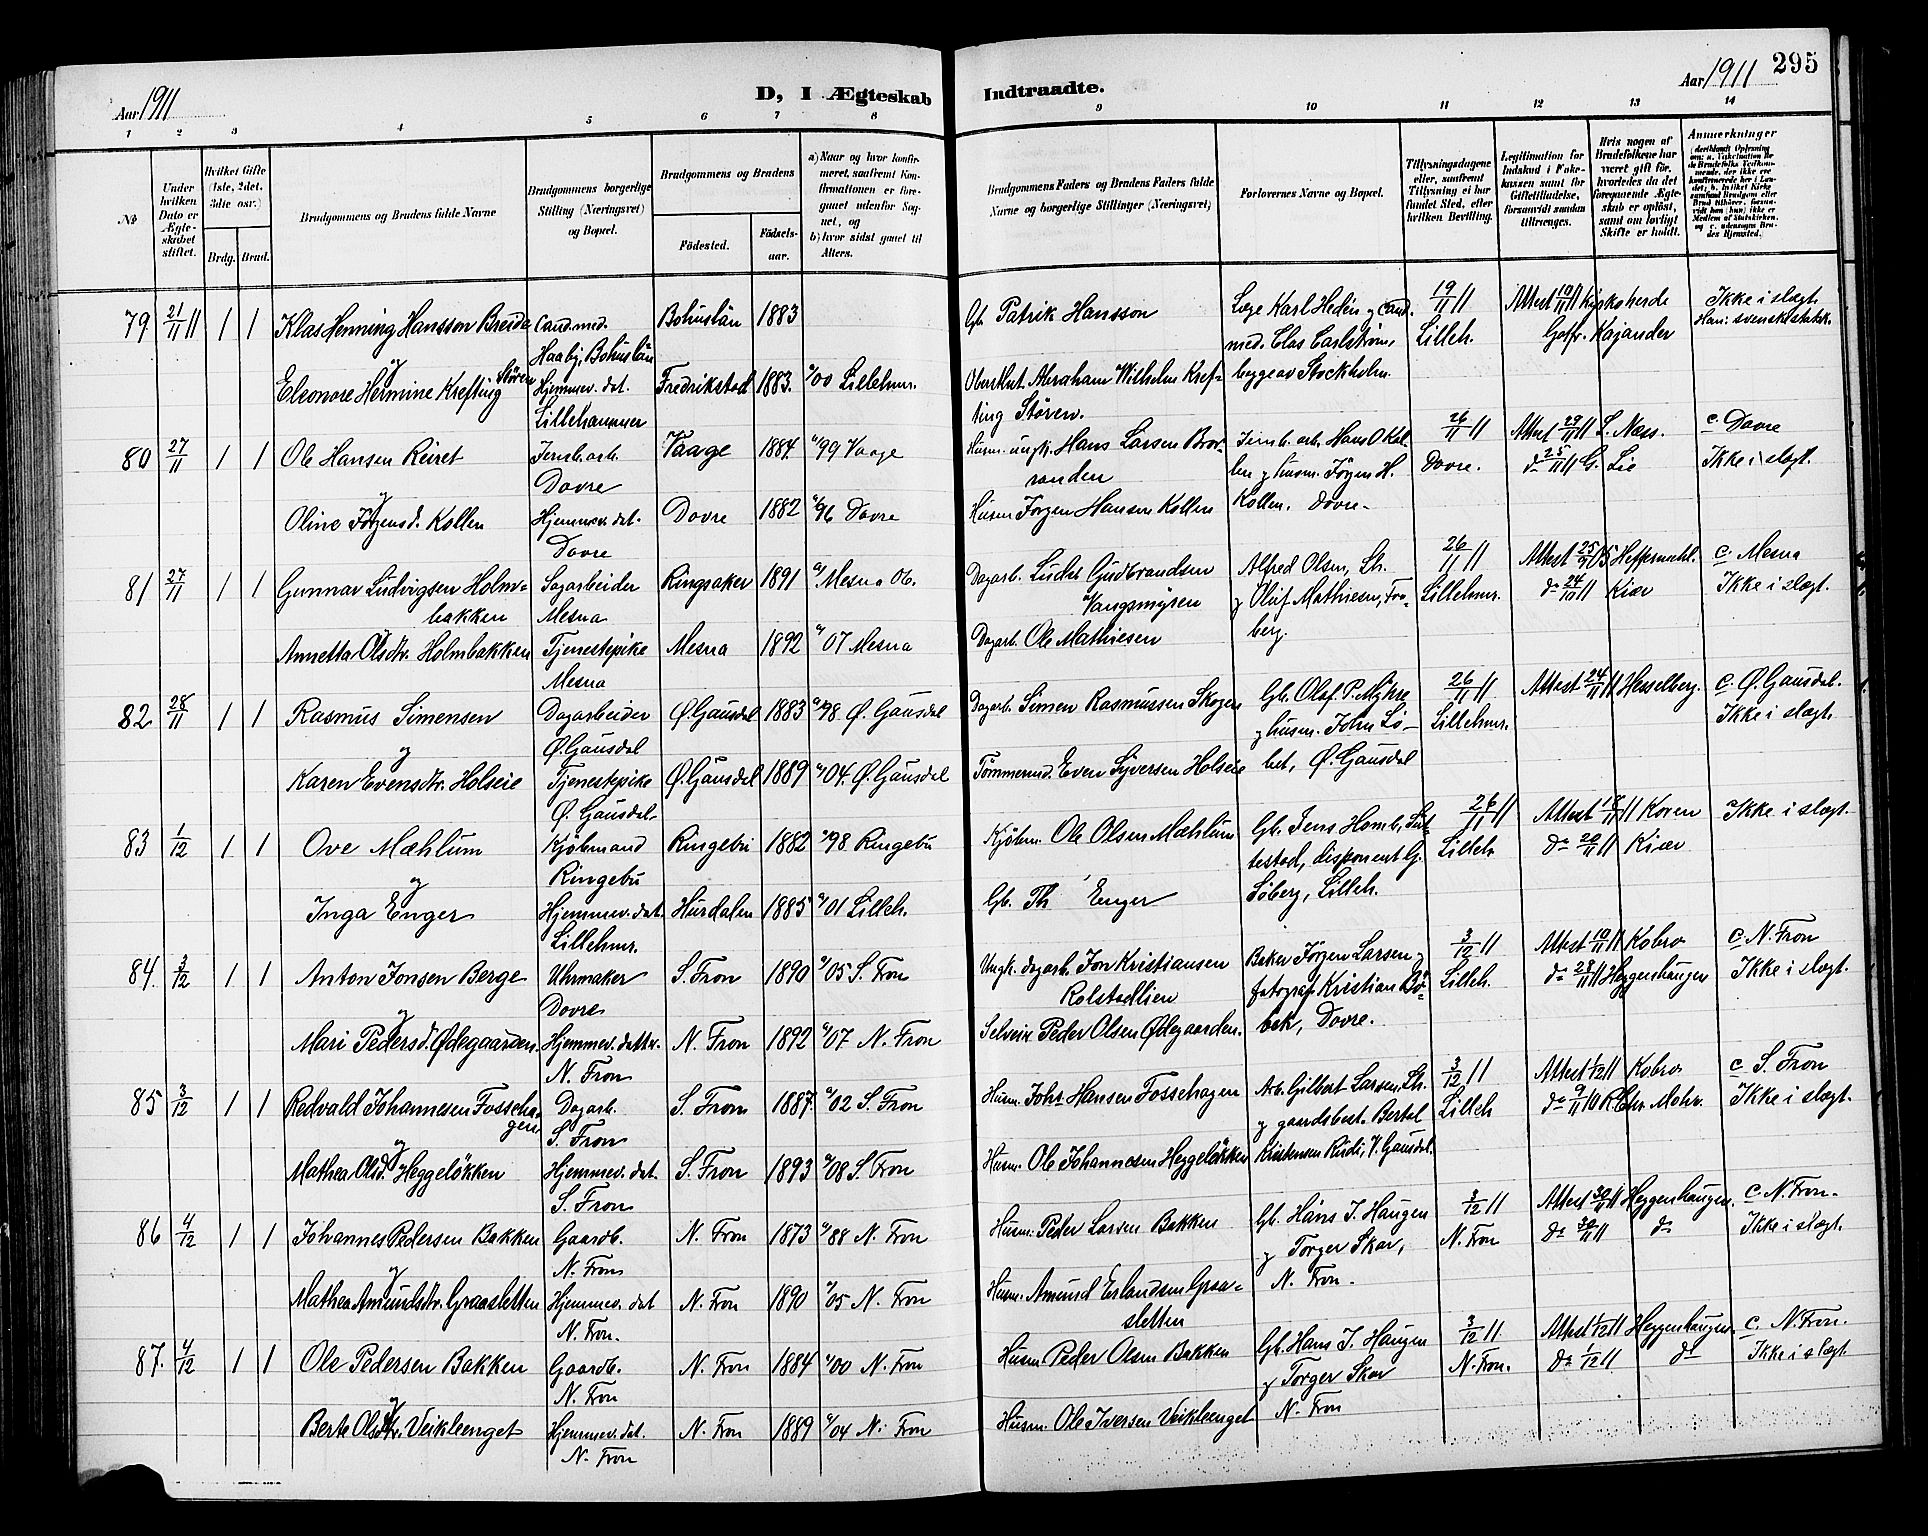 Aar 1911
D, I Ægteskab Indtraadte.
Aar 1911 295
1 2 3 4 5 6 7 8 9 10 11 12 13 14
№
Under hvilken Dato er Ægteskabet stiftet.
Hvilket Gifte (1ste, 2det, 3dte osv.)
Brdg. Brud.
Brudgommens og Brudens fulde Navne
Brudgommens borgerlige Stilling (Næringsvei) og Bopæl.
Brudgommens og Brudens
Födested.
Födselsaar.
a) Naar og hvor konfirmeret, saafremt Konfirmationen er foregaaet udenfor Sognet, og
b) hvor sidst gaaet til Alters.
Brudgommens Faders og Brudens Faders fulde Navne og borgerlige Stillinger (Næringsvei)
Forlovernes Navne og Bopæl.
Tillysningsdagene eller, saafremt Tillysning ei har fundet Sted, efter hvilken Bevilling.
Legitimation for Indskud i Enkekassen samt for Giftetilladelse, forsaavidt saadan tiltrænges.
Hvis nogen af Brudefolkene har været gift för, hvorledes da det foregaaende Ægteskab er oplöst, samt om lovligt Skifte er holdt.
Anmærkninger
79 21/11 11 1 1 Klas Henning Hansson Breida Cand. med. Haaby, Bohuslän Bohuslän 1883 Gb. Patrik Hansson Læge Karl Hedin og cand. med. Clas Carlström, begge av Stockholm. 19/11 11 Lilleh. Attest 10/11 11 Kyrkoherde Gotfr. Kajander Ikke i slægt. Han: svensk statsb.
og
Eleonore Hermine Krefting Stören Hjemmev. dat. Lillehammer Fredrikstad 1883. 00 Lillehmr. Oberstlut. Abraham Wilhelm Krefting Stören.
80 27/11 1 1 Ole Hansen Reiret Jernb. arb. Dovre Vaage 1884. 99 Vaage Husm. ungk. Hans Larsen 26/11 11 Dovre. Attest 29/11 11 L. Næss. do 25/11 11 G. Lie c. Dovre Ikke i slægt.
og
Oline Jørgensd. Kollen Hjemmev. dat. Dovre Dovre 1882 96 Dovre Husm Jørgen Hansen Kollen og husm. Jörgen H. Kollen, Dovre.
81 27/11 1 1 Gunnar Ludvigsen Holmbakken Sagarbeider Mesna Ringsaker 1891 Mesna Ob. Dagarb. Ludv. Gudbrandsen Vangsmyren Alfred Olsen, Lh. og Oluf Mathisen, Froberg. 26/11 11 Lillehmr. Attest 25/9 05 do 24/10 11 Kiær c. Mesna Ikke i slægt.
Annetta Olsdtr. Holmbakken Tjenestepike Mesna Mesna 1892 07 Mesna Dagarb. Ole Mathiesen
82 28/11 1 1 Rasmus Simensen Dagarbeider Ø. Gausdal Ø. Gausdal 1883 98 Ø. Gausdal Dagarb. Simen Rasmussen Skogen Gb. Olaf P. Myhre og husm. John Löbet, Ø. Gausdal 26/11 11 Lillehmr. Attest 24/11 11 Hesselberg. c. Ø. Gausdal. Ikke i slægt.
og
Karen Evensdtr. Holseie Tjenestepike Ø. Gausdal. Ø. Gausdal 1889 04. Ø. Gausdal Tömmermd. Even Syversen Holseie
83 1/12 1 1 Ove Mæhlum Kjöbmand Ringebu Ringebu 1882 98 Ringebu Kjöbm. Ole Olsen Mæhlum Gb. Jens Homb, disponent G. Söberg, Lilleh. 26/11 11 Lilleh Attest 18/11 11 Koren do 20/11 11 Kiær Ikke i slægt.
og
Inga Enger Hjemmev. dat. Lillehmr. Hurdalen 1885 01 Lilleh. Gb. Th Enger
84. 3/12 1 1 Anton Jonsen Berge Uhrmaker Dovre S. Fron 1890 05 S. Fron Ungk. dagarb. Jon Kristiansen Rolstadlien Baker Jörgen Larsen og fotograf Kristian Böbek, Dovre. 3/12 11 Lilleh. Attest 10/11 11 Kobro do 28/11 11 Heggenhaugen c. N. Fron Ikke i slægt.
og
Mari Pedersd. Ødegaarden. Hjemmev. datter. N. Fron N. Fron 1892 07 N. Fron Selveier Peder Olsen Ødegaarden.
85 3/12 1 1 Redvald Johannesen Fossehagen Dagarb. S. Fron S. Fron 1887. 02 S. Fron Husm. Johs Hansen Fossehagen Arb. Gilbert Larsen, Lh. og gaardsbest. Bertel Kristensen Rudi, V. Gausdal. 3/12 11 Lilleh Attest 1/12 11 Kobro do 9/11 11 R. Chr. Mohr. c S. Fron Ikke i slægt.
og
Mathea Olsd. Heggelökken Hjemmev. dat. S. Fron S. Fron 1893 08 S. Fron Husm. Ole Johannesen Heggelökken
86 4/12 1 1 Johannes Pedersen Bakken Gaardb. N. Fron N. Fron 1873 88 N. Fron Husm. Peder Larsen Bakken Gb. Hans J. Haugen og Torger Skar, N. Fron. 3/12 11 N. Fron Attest 30/11 11 Heggenhaugen. do 30/11 11 do c. N. Fron. Ikke i slægt.
og
Mathea Amundsdtr. Graasletten Hjemmev. dat N. Fron. N. Fron 1890 05 N. Fron Husm. Amund Erlandsen Graasletten
87. 4/12 1 1 Ole Pedersen Bakken Gaardb. N. Fron N. Fron 1884 00 N. Fron Husm Peder Olsen Bakken Gb. Hans J. Haugen og Torger Skar N. Fron 3/12 11 N. Fron. Attest 1/12 11 Heggenhaugen. do 1/12 11 do c. N. Fron. Ikke i slægt
og
Berte Olsdtr. Veikleenget Hjemmev. dat. N. Fron N. Fron 1889 04 N. Fron Husm. Ole Iversen Veikleenget